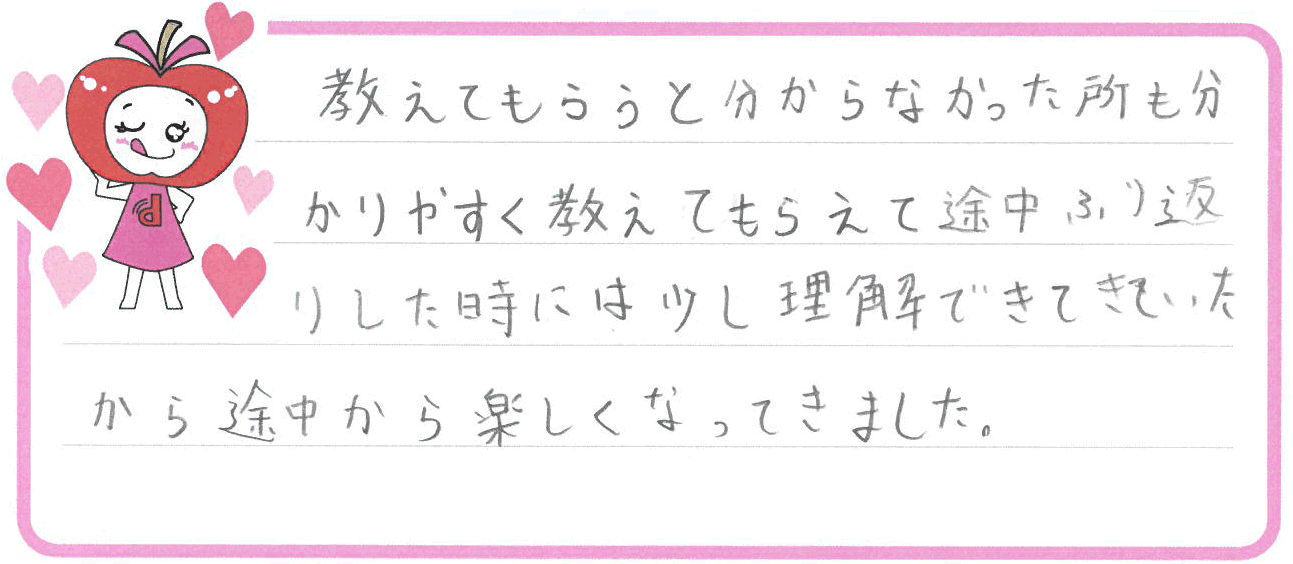 教えてもらうと分からなかった所も分
かりやすく教えてもらえて途中ふり返
りした時には少し理解できてきていた
から途中から楽しくなってきました。